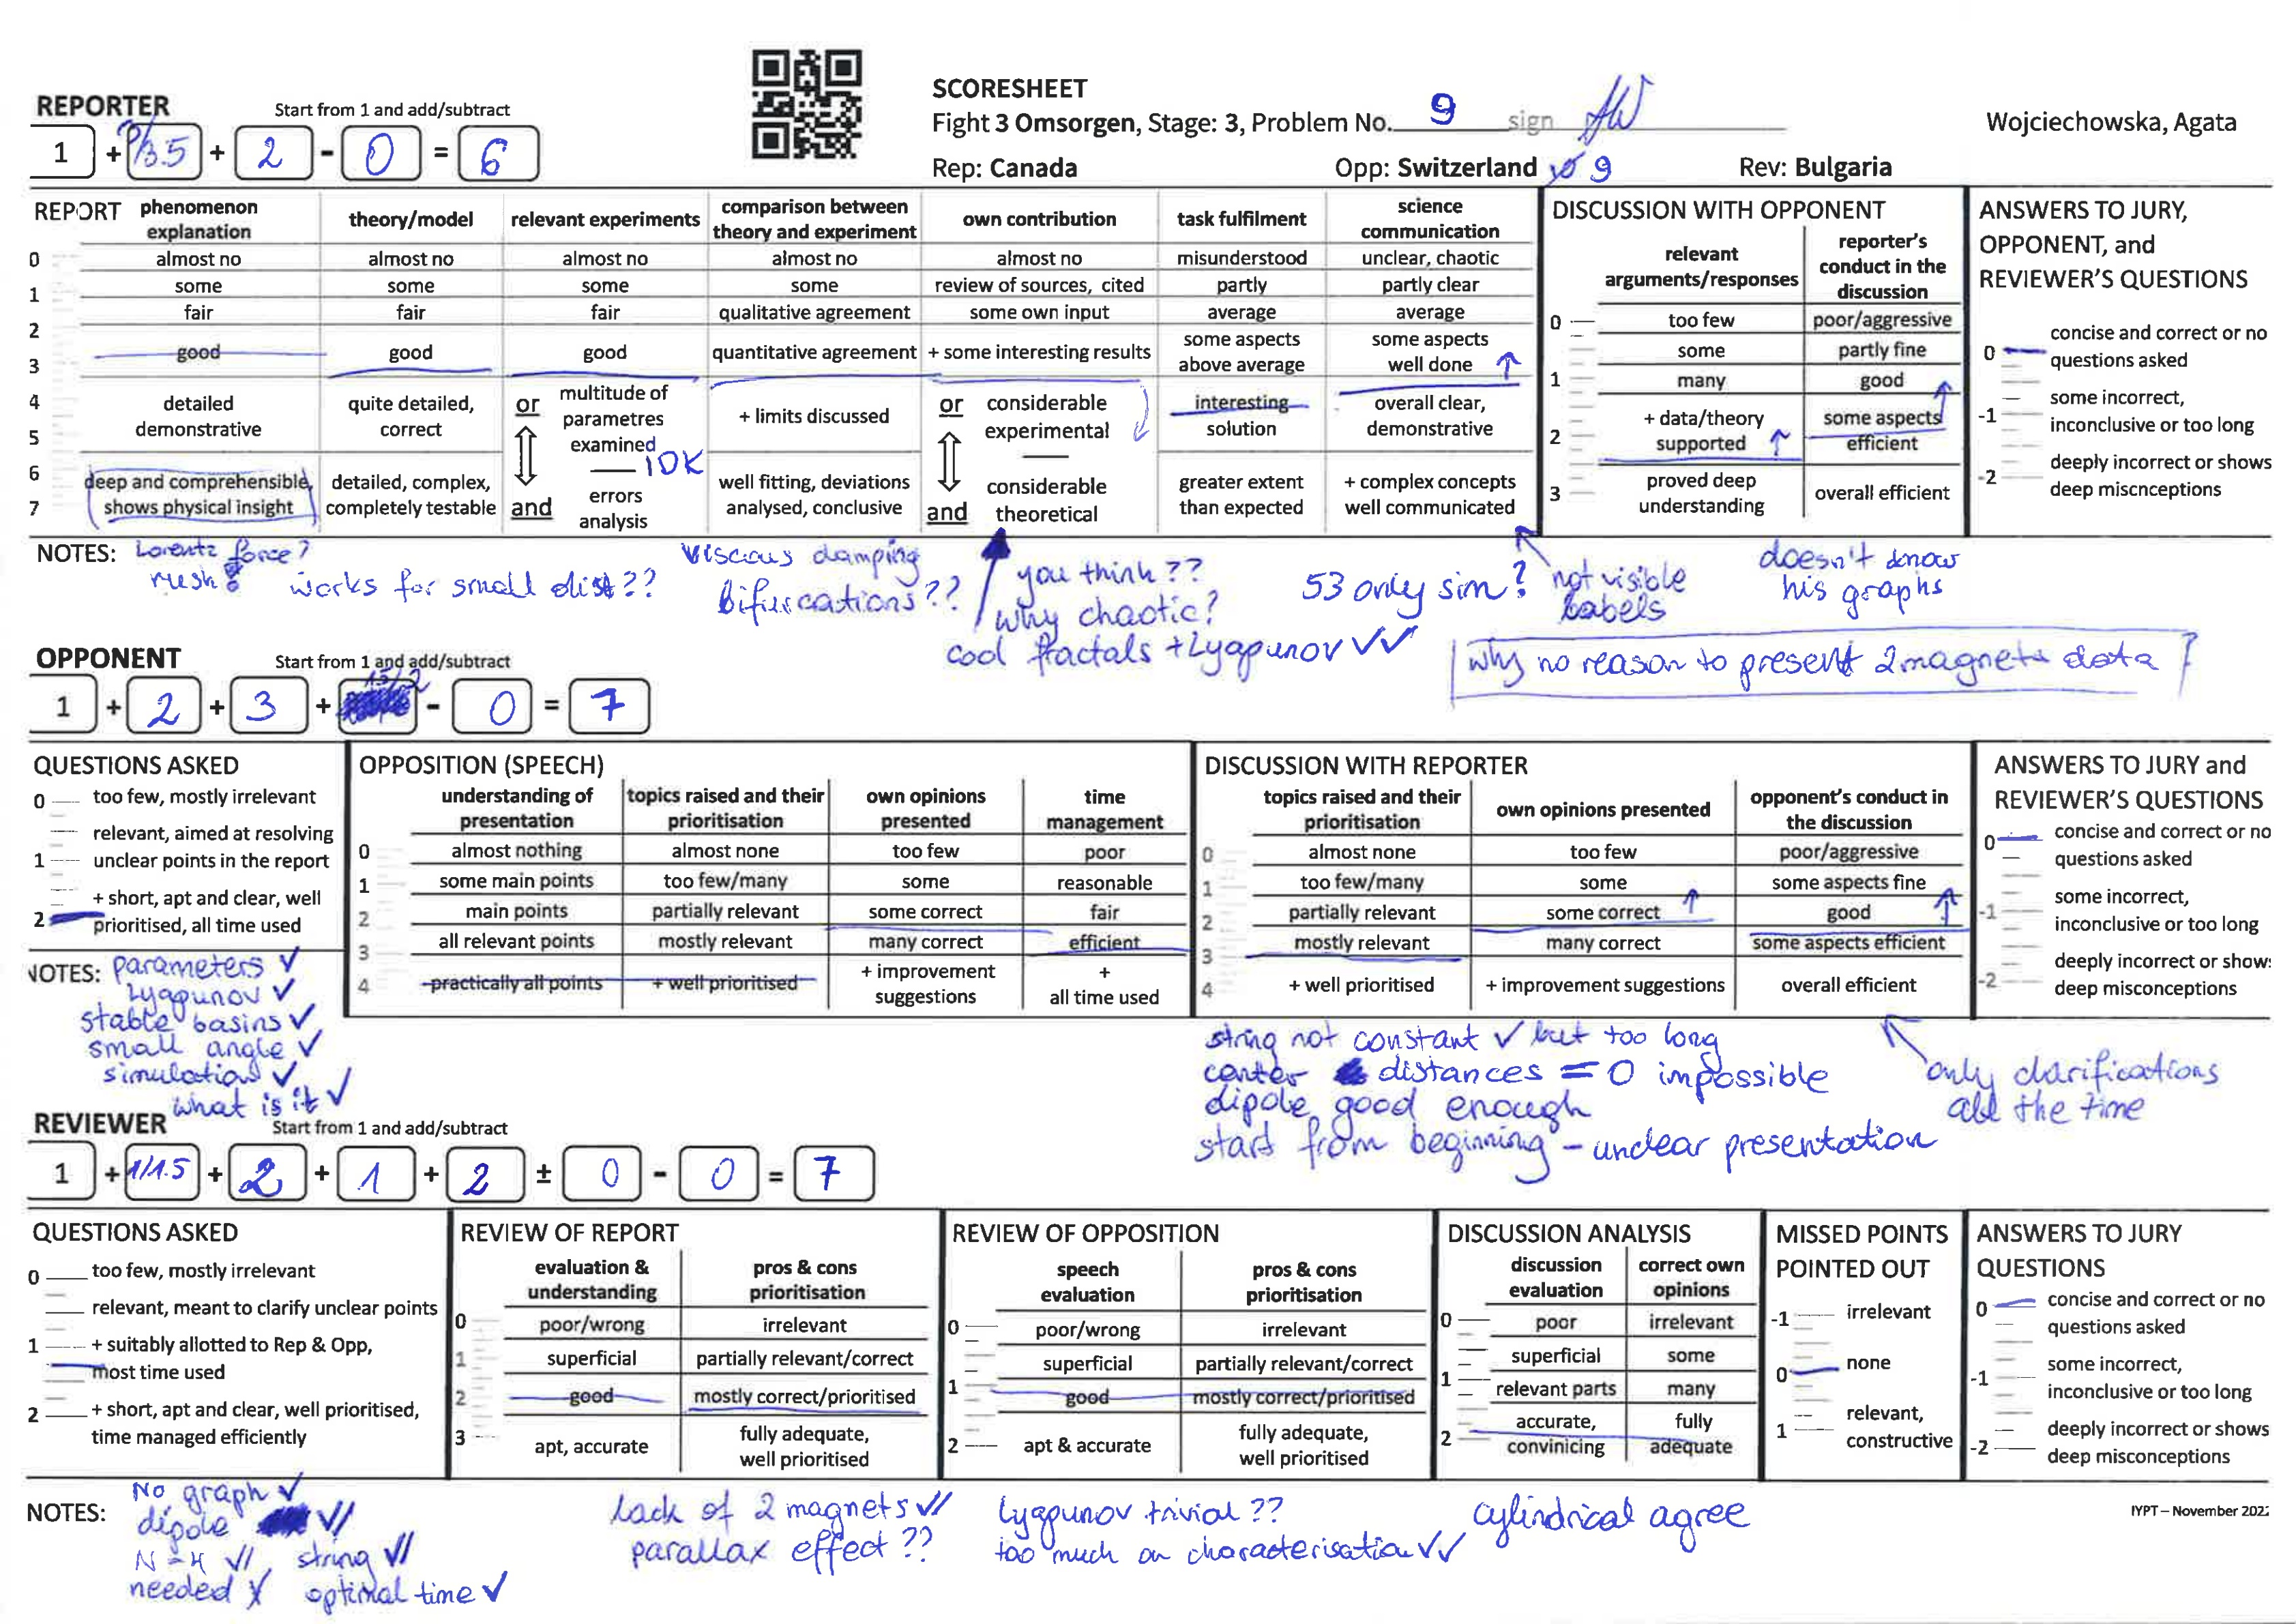 SCORESHEET
REPORTER Start from 1 and add/subtract
Fight 3 Omsorgen, Stage: 3, Problem No. 9 sign
Wojciechowska, Agata
1 + 3.5 + 2 - 0 = 6
Rep: Canada Opp: Switzerland 9 Rev: Bulgaria
REPORT
phenomenon explanation
theory/model
relevant experiments
comparison between theory and experiment
own contribution
task fulfilment
science communication
0 almost no almost no almost no almost no almost no misunderstood unclear, chaotic
1 some some some some review of sources, cited partly partly clear
fair fair fair qualitative agreement some own input average average
2
3 good good good quantitative agreement + some interesting results some aspects above average some aspects well done ↑
4
5 detailed demonstrative quite detailed, correct or multitude of parametres examined + limits discussed or considerable experimental interesting solution overall clear, demonstrative
IDK
6
7 deep and comprehensible, shows physical insight detailed, complex, completely testable and errors analysis well fitting, deviations analysed, conclusive and considerable theoretical greater extent than expected + complex concepts well communicated
DISCUSSION WITH OPPONENT
relevant arguments/responses
reporter's conduct in the discussion
0 too few poor/aggressive
some partly fine
1 many good
2 + data/theory supported ↑ some aspects efficient
3 proved deep understanding overall efficient
ANSWERS TO JURY,
OPPONENT, and
REVIEWER'S QUESTIONS
0 concise and correct or no questions asked
-1 some incorrect, inconclusive or too long
-2 deeply incorrect or shows deep miscnceptions
NOTES: Lorentz force?
rush!
works for small dist??
viscous damping
bifurcations??
you think??
why chaotic?
cool fractals + Lyapunov ✓✓
53 only sim?
not visible
labels
doesn't know
his graphs
why no reason to present 2 magnets data?
OPPONENT Start from 1 and add/subtract
1 + 2 + 3 + 1.5/2 - 0 = 7
QUESTIONS ASKED
0 too few, mostly irrelevant
relevant, aimed at resolving
1 unclear points in the report
+ short, apt and clear, well
2 prioritised, all time used
NOTES: parameters ✓
Lyapunov ✓
stable basins ✓
small angle ✓
simulation ✓
what is it ✓
OPPOSITION (SPEECH)
understanding of presentation
topics raised and their prioritisation
own opinions presented
time management
0 almost nothing almost none too few poor
1 some main points too few/many some reasonable
2 main points partially relevant some correct fair
3 all relevant points mostly relevant many correct efficient
4 practically all points + well prioritised + improvement suggestions + all time used
DISCUSSION WITH REPORTER
topics raised and their prioritisation
own opinions presented
opponent's conduct in the discussion
0 almost none too few poor/aggressive
1 too few/many some some aspects fine
2 partially relevant some correct ↑ good ↑
3 mostly relevant many correct some aspects efficient
4 + well prioritised + improvement suggestions overall efficient
ANSWERS TO JURY and
REVIEWER'S QUESTIONS
0 concise and correct or no questions asked
-1 some incorrect, inconclusive or too long
-2 deeply incorrect or shows deep misconceptions
string not constant ✓ but too long
center distances = 0 impossible
dipole good enough
start from beginning - unclear presentation
only clarifications
all the time
REVIEWER Start from 1 and add/subtract
1 + 1/1.5 + 2 + 1 + 2 ± 0 - 0 = 7
QUESTIONS ASKED
0 too few, mostly irrelevant
relevant, meant to clarify unclear points
1 + suitably allotted to Rep & Opp,
most time used
2 + short, apt and clear, well prioritised,
time managed efficiently
REVIEW OF REPORT
evaluation & understanding
pros & cons prioritisation
0 poor/wrong irrelevant
1 superficial partially relevant/correct
2 good mostly correct/prioritised
3 apt, accurate fully adequate, well prioritised
REVIEW OF OPPOSITION
speech evaluation
pros & cons prioritisation
0 poor/wrong irrelevant
superficial partially relevant/correct
1 good mostly correct/prioritised
2 apt & accurate fully adequate, well prioritised
DISCUSSION ANALYSIS
discussion evaluation
correct own opinions
0 poor irrelevant
superficial some
1 relevant parts many
2 accurate, convinicing fully adequate
MISSED POINTS
POINTED OUT
-1 irrelevant
0 none
1 relevant, constructive
ANSWERS TO JURY
QUESTIONS
0 concise and correct or no questions asked
-1 some incorrect, inconclusive or too long
-2 deeply incorrect or shows deep misconceptions
NOTES: No graph ✓
dipole ✓✓
N=4 ✓✓ string ✓✓
needed X optimal time ✓
lack of 2 magnets ✓✓
parallax effect??
Lyapunov trivial??
too much on characterisation ✓✓
cylindrical agree
IYPT – November 202